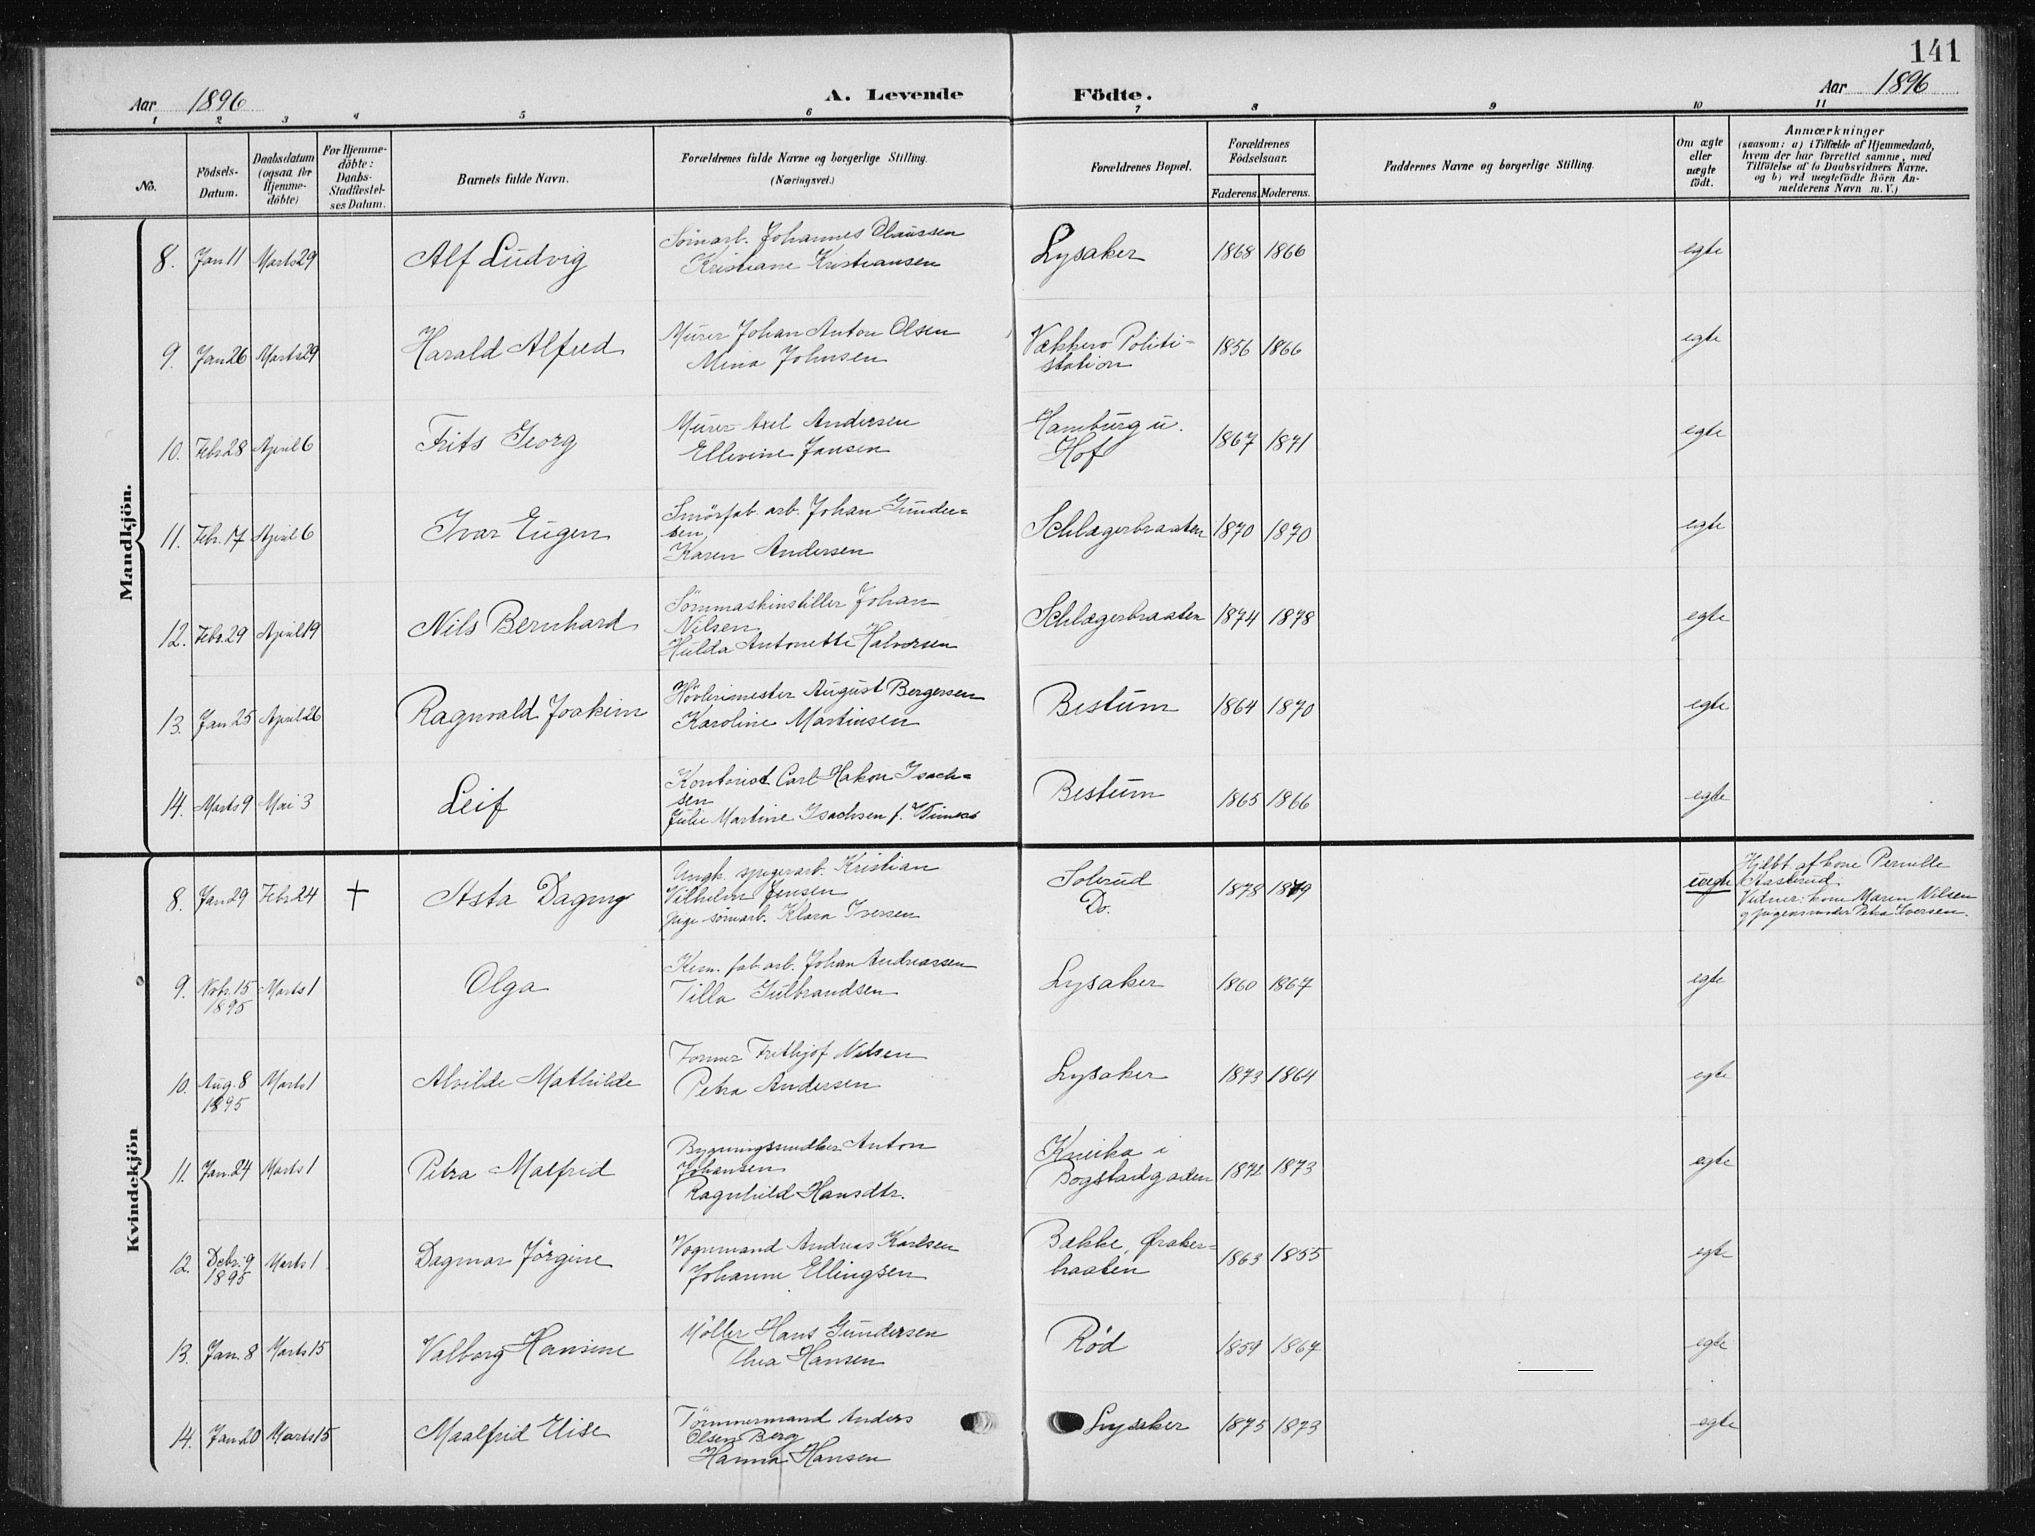 141
Aar 1896 A. Levende Födte. Aar 1896
1 2 3 4 5 6 7 8 9 10 11
No.
Födsels-
Datum.
Daabsdatum
(ogsaa for
Hjemme-
döbte)
For Hjemme-
döbte:
Daabs-
Stadfæstel-
ses Datum.
Barnets fulde Navn.
Forældrenes fulde Navne og borgerlige Stilling.
(Næringsvei.)
Forældrenes Bopæl.
Forældrenes
Födselsaar.
Faderens. Moderens.
Faddernes Navne og borgerlige Stilling.
Om ægte
eller
uægte
födt.
Anmærkninger
(saasom: a) i Tilfælde af Hjemmedaab,
hvem der har forrettet samme, med
Tilföielse af to Daabsvidners Navne.
og b) ved uægtefödte Börn An-
melderens Navn m. V.)
Mandkjön.
8. Jan 11 Marts 29 Alf Ludvig Sömarb. Johannes Claussen
Kristiane Kristiansen Lysaker 1868 1866 egte
9. Jan 26 Marts 29 Harald Alfred Murer Johan Anton Olsen
Mina Johnsen Vækkerø Politi-
station 1856 1866 egte
10. Febr 28 April 6 Frits Georg Murer Axel Andersen
Ellevine Jansen Hamburg u.
Hof 1867 1871 egte
11. Febr. 17 April 6 Ivar Eugen Smörfab. arb. Johan Gunder=
sen
Karen Andersen Schlægerbraaten 1870 1870 egte
12. Febr. 29 April 19 Nils Bernhard Sömmaskinstiller Johan
Nilsen
Hulda Antonette Halvorsen Schlægerbraaten 1874 1878 egte
13. Jan 25 April 26 Ragnvald Joakim Hövlerimester August Bergersen
Karoline Martinsen Bestum 1864 1870 egte
14. Marts 9 Mai 3 Leif Kontorist Carl Hakon Isach=
sen
Julie Martine Isachsen f. Bestum 1865 1866 egte
Kvindekjön
8. Jan 29 Febr 24 † Asta Dagny Ungk. spigerarb. Kristian
Vilhelm Jensen
Pige sömarb. Klara Iversen Solerud
Do. 1878 1879 uegte
Hjdbt af kone Pernille
Staserud
Vidner: kone Maren Nilsen
og pigens moder Petra Iversen.
9. Nobr. 15
1895 Marts 1 Olga Kem. fab. arb. Johan Andreassen
Tilla Gulbrandsen Lysaker 1860 1867 egte
10. Aug. 8
1895 Marts 1 Alvilde Mathilde Former Frithjof Nilsen
Petra Andersen Lysaker 1873 1864 egte
11. Jan. 24 Marts 1 Petra Malfrid Bygningssnedker Anton
Johansen
Ragnhild Hansdtr. Kneika i
Bogstadgaden 1872 1873 egte
12. Debr. 9
1895 Marts 1 Dagmar Jörgine Vognmand Andreas Karlsen
Johanne Ellingsen Bække, Øraker=
braaten 1863 1855 egte
13. Jan. 8 Marts 15 Valborg Hansine Möller Hans Gundersen
Thea Hansen Rød 1859 1867 egte
14. Jan 20 Marts 15 Maalfrid Elise Tømmermand Anders
Olsen Berg
Hanna Hansen Lysaker 1875 1873 egte